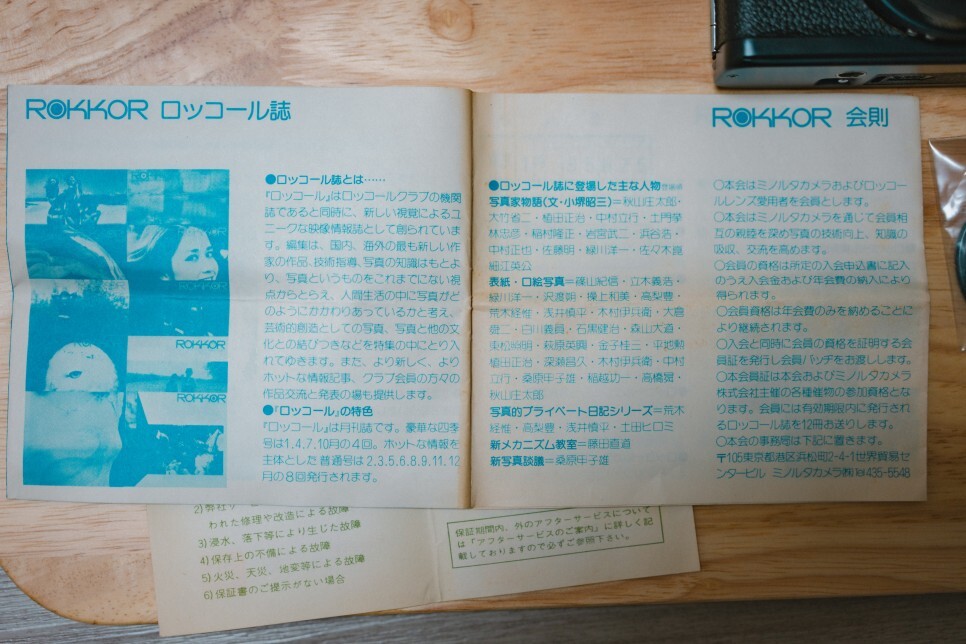 ROKKOR ロッコール誌
●ロッコール誌とは……
『ロッコール』はロッコールクラブの機関
誌であると同時に、新しい視覚によるユ
ニークな映像情報誌として創られていま
す。編集は、国内、海外の最も新しい作
家の作品、技術指導、写真の知識はもとよ
り、写真というものをこれまでにない視
点からとらえ、人間生活の中に写真がど
のようにかかわりあっているかと考え、
芸術的創造としての写真、写真と他の文
化との結びつきなどを特集の中にとり入
れてゆきます。また、より新しく、より
ホットな情報記事、クラブ会員の方々の
作品交流と発表の場も提供します。
●『ロッコール』の特色
『ロッコール』は月刊誌です。豪華な四季
号は1.4.7.10月の4回。ホットな情報を
主体とした普通号は2.3.5.6.8.9.11.12
月の8回発行されます。
ROKKOR
ROKKOR
ROKKOR
ROKKOR 会則
●ロッコール誌に登場した主な人物
写真家物語(文・小堺昭三)=秋山庄太郎・
大竹省二・植田正治・中村立行・土門拳
林忠彦・稲村隆正・岩宮武二・浜谷浩・
中村正也・佐藤明・緑川洋一・佐々木崑
細江英公
表紙・口絵写真=篠山紀信・立木義浩・
緑川洋一・沢渡朔・操上和美・高梨豊・
荒木経惟・浅井慎平・木村伊兵衛・大倉
舜二・白川義員・石黒健治・森山大道・
東松照明・萩原英興・金子桂三・平地勲
植田正治・深瀬昌久・木村伊兵衛・中村
立行・桑原甲子雄・稲越功一・高橋昇・
秋山庄太郎
写真的プライベート日記シリーズ=荒木
経惟・高梨豊・浅井慎平・土田ヒロミ
新メカニズム教室=藤田直道
新写真談議=桑原甲子雄
○本会はミノルタカメラおよびロッコー
ルレンズ愛用者を会員とします。
○本会はミノルタカメラを通じて会員相
互の親睦を深め写真の技術向上、知識の
吸収、交流を高めます。
○会員の資格は所定の入会申込書に記入
のうえ入会金および年会費の納入により
得られます。
○会員資格は年会費のみを納めることに
より継続されます。
○入会と同時に会員の資格を証明する会
員証を発行し会員バッヂをお渡しします。
○本会員証は本会およびミノルタカメラ
株式会社主催の各種催物の参加資格とな
ります。会員には有効期限内に発行され
るロッコール誌を12冊お送りします。
○本会の事務局は下記に置きます。
〒105東京都港区浜松町2-4-1世界貿易セ
ンタービル ミノルタカメラ㈱℡435-5548
2)弊社サー
われた修理や改造による故障
3)浸水、落下等により生じた故障
4)保存上の不備による故障
5)火災、天災、地変等による故障
6)保証書のご提示がない場合
保証期間内、外のアフターサービスについて
は「アフターサービスのご案内」に詳しく記
載しておりますので必ずご参照下さい。